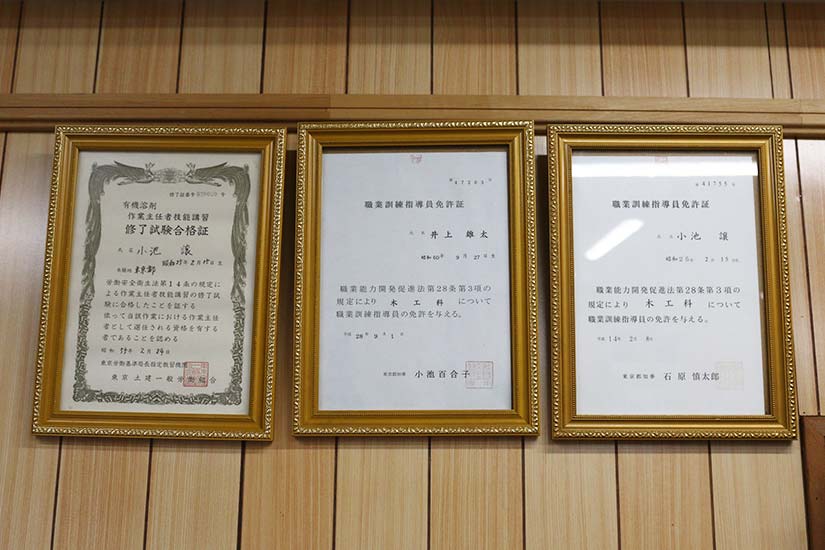 修了証番号
有機溶剤
作業主任者技能講習
修了試験合格証
氏名 小池 譲
本籍地 東京都
労働安全衛生法第14条の規定に
よる作業主任者技能講習の修了試
験に合格したことを証する
依って当該作業における作業主任
者として選任される資格を有する
者であることを認める
昭和 59年 2月 24日
東京労働基準局長指定教習機関
東京土建一般労働組合
職業訓練指導員免許証
氏名 井上 雄太
昭和60年 9月27日生
職業能力開発促進法第28条第3項の
規定により 木工科 について
職業訓練指導員の免許を与える。
平成 28年 9月 1日
東京都知事 小池百合子
第 41755 号
職業訓練指導員免許証
氏名 小池 譲
昭和25年 2月15日生
職業能力開発促進法第28条第3項の
規定により 木工科 について
職業訓練指導員の免許を与える。
平成 14年 2月 8日
東京都知事 石原慎太郎